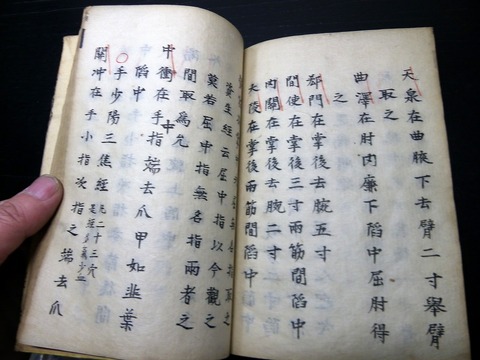 天泉在曲腋下去臂二寸舉臂
取之
曲澤在肘内廉下陷中屈肘得
之
郄門在掌後去腕五寸
間使在掌後三寸兩筋間陷中
内關在掌後去腕二寸
大陵在掌後兩筋間陷中
資生經云屈中指以今觀之
莫若屈中指無名指兩者之
間取爲允
中衝在手中指端去爪甲如韭葉
陷中
○手少陽三焦經 凡二十三穴
是經多氣少血
關冲在手小指次指之端去爪